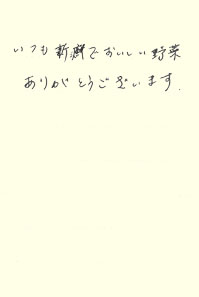 いつも新鮮でおいしい野菜
ありがとうございます.